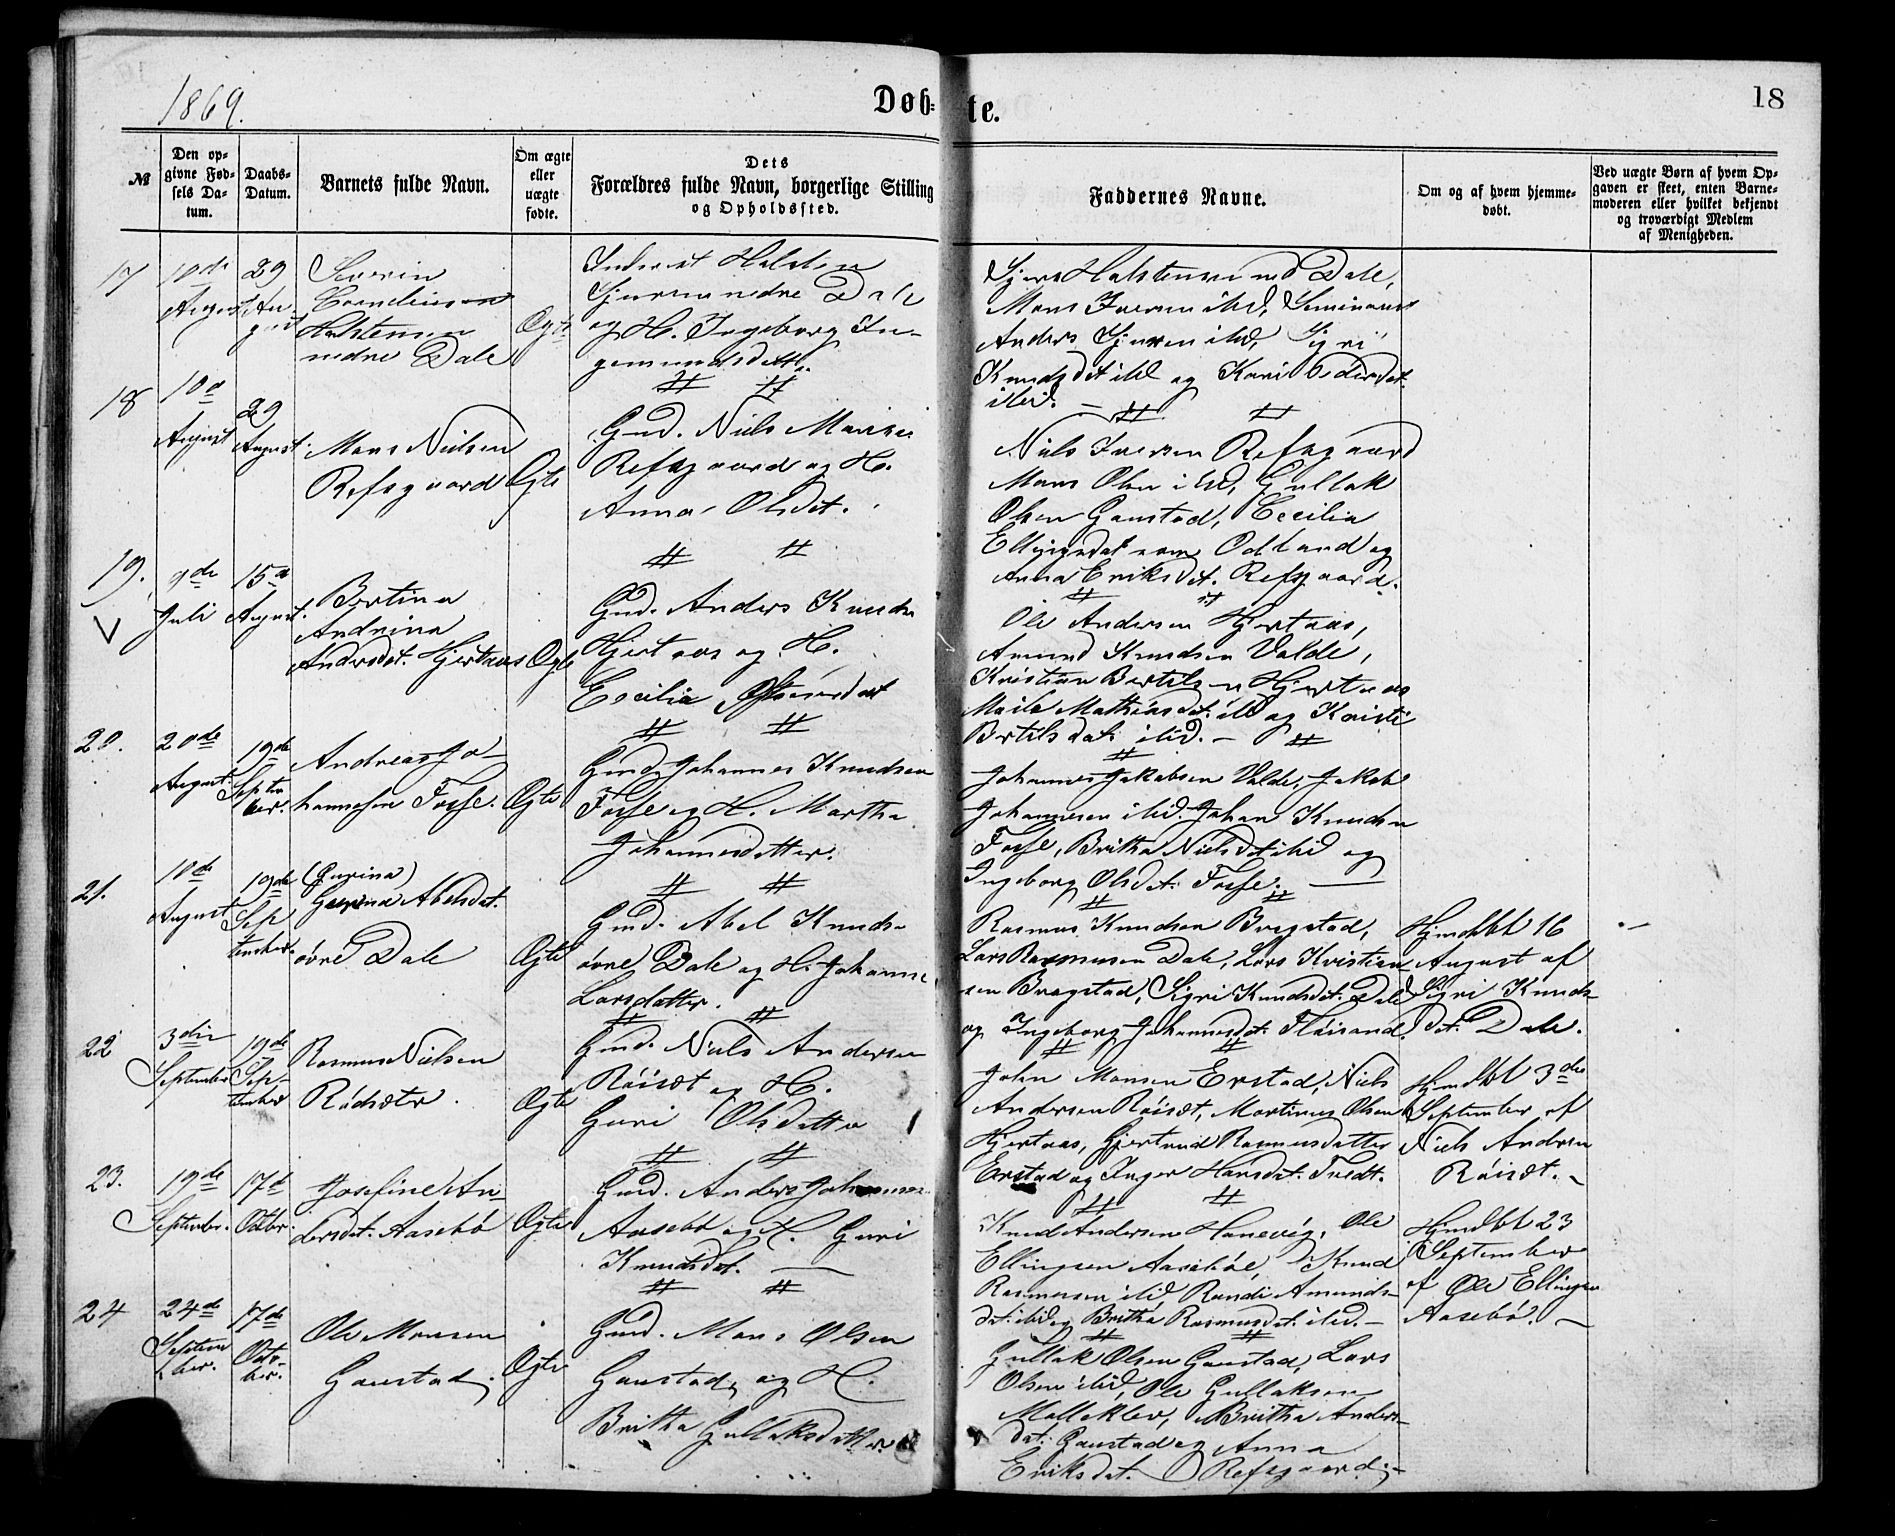 1869.
Døbte.
18
№
Den opgivne Fødsels Datum.
Daabs-Datum.
Barnets fulde Navn.
Om ægte eller uægte fødte.
Dets
Forældres fulde Navn, borgerlige Stilling
og Opholdssted.
Faddernes Navne.
Om og af hvem hjemmedøbt.
Ved uægte Børn af hvem Opgaven er skeet, enten Barnemoderen eller hvilket bekjendt og troværdigt Medlem af Menigheden.
17
10de
August
29
August
Severin
Halstensen
nedre Dale
Ægte
Halsten
Sjursen nedre Dale
og H. Ingeborg In-
gemundsdatter
Sjurs Halstensen ned Dale,
Mons Iversen ibd,
Anders Sjursen ibd, Sigri
Knudsdet ibd og Kari Pedersdat.
ibid. —
18
10d
August
29
August.
Mons Nielsen
Refsgaard
Ægte
Gmd. Niels Monsen
Refsgaard og H.
Anna Olsdet.
Niels Iversen Refsgaard
Mons Olsen ibd, Gullak
Olsen Gaustad, Cecilia
Odland og
Anna Eriksdet. Refsgaard.
19.
V
9de
Juli
15d
August.
Bertina
Andrina
Andersdet. Hjertaas
Ægte
Gmd. Anders Knudsen
Hjertaas og H.
Cecilia
Ole Andersen Hjertaas,
Amund Knudsen Valde,
Kristian Bertelsen Hjertaas
Mathiasdet: ibd og Kristi
Bertelsdat: ibid. —
20.
20de
August
19de
Septbr
ber.
Andreas Jo-
hannesen Fosse.
Ægte
Gmd. Johannes Knudsen
Fosse og H. Martha
Johannesdatter.
Johannes Jakobsen Valde, Jakob
Johannesen ibid. Johan Knudsen
Fosse, Britha Nielsdet ibid og
Ingeborg Olsdet: Fosse. —
21.
10de
August
19de
Sep
tember.
(Gurina)
Gurina Abelsdet.
øvre Dale
Ægte
Gmd. Abel Knuds-
øvre Dale og H. Johanne
Larsdatter.
Rasmus Knudsen Bragstad,
Lars Rasmusen Dale, Lars Kristian
sen Bragstad, Sigri Knudsdet: Dale
og Ingeborg Johannesdet: Fløisand.
Hjemdbt 16
August af
Sigri Knuds-
det: Dale.
22
3die
September
19de
Sep-
tember
Rasmus Nielsen
Rødsæter.
Ægte
Gmd. Niels Andersen
Røisæt og H.
Guri Olsdatter
John Monsen Erstad, Niels
Andersen Røisæt, Martinus Olsen
Hjertaas, Gjertrud Rasmusdatter
Erstad og Inger Hansdet. Tvedt.
Hjemdbt 3die
September af
Niels Andersen
Røisæt. —
23.
19de
September.
17d
Octbr.
Josefine An-
dersdet. Aasebø
Ægte
Gmd. Anders Johannesen
Aasebø og H. Guri
Knudsdet. —
Knud Andersen Hanevig, Ole
Ellingsen Aasebøe, Knud
Rasmusen ibid, Randi Amunds-
det: ibid og Britha Rasmusdet: ibid. —
Hjemdbt 23
September
af Ole Ellingsen
Aasebø. —
24
24de
Septem
ber.
17de
Octo-
ber.
Ole Monsen
Gaustad.
Ægte
Gmd. Mons Olsen
Gaustad, og H.
Britha Gullaksdatter.
Gullak Olsen Gaustad, Lars
Olsen ibid, Ole Gullaksen
Molleklev, Britha Anders-
det: Gaustad og Anna
Eriksdet. Refsgaard. —